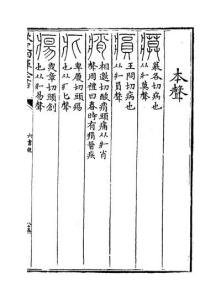 本聲
瘼 慕各切病也
从疒莫聲
王問切病也
从疒員聲
痟 相邀切酸痟頭痛从疒肖
聲周禮曰春時有痟首疾
疕 卑履切頭瘍
也从疒匕聲
瘍 章切頭創
也从疒昜聲
六書統